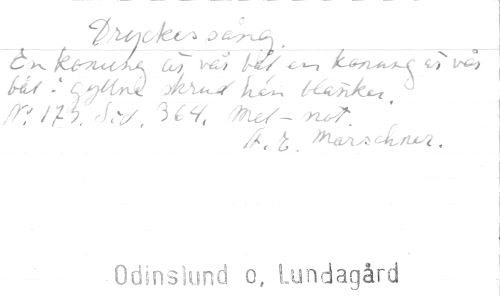 Dryckessång.
En konung är vår bål en konung är vår
bål i gyllne skrud han blänker.
N: 173. Sid. 364. Mel-not.
A. E. Marschner.
Odinslund o, Lundagård